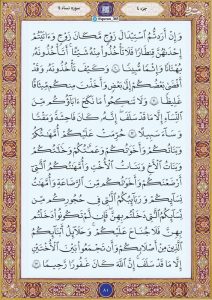 جزء ٤
سورة نساء ٤
وَإِنْ أَرَدْتُمُ اسْتِبْدَالَ زَوْجٍ مَكَانَ زَوْجٍ وَءَاتَيْتُمْ
إِحْدَىٰهُنَّ قِنْطَارًا فَلَا تَأْخُذُوا مِنْهُ شَيْئًا أَتَأْخُذُونَهُ
بُهْتَانًا وَإِثْمًا مُبِينًا ۝٢٠ وَكَيْفَ تَأْخُذُونَهُ وَقَدْ
أَفْضَىٰ بَعْضُكُمْ إِلَىٰ بَعْضٍ وَأَخَذْنَ مِنْكُمْ مِيثَاقًا
غَلِيظًا ۝٢١ وَلَا تَنْكِحُوا مَا نَكَحَ ءَابَاؤُكُمْ مِنَ
النِّسَاءِ إِلَّا مَا قَدْ سَلَفَ إِنَّهُ كَانَ فَاحِشَةً وَمَقْتًا
وَسَاءَ سَبِيلًا ۝٢٢ حُرِّمَتْ عَلَيْكُمْ أُمَّهَاتُكُمْ
وَبَنَاتُكُمْ وَأَخَوَاتُكُمْ وَعَمَّاتُكُمْ وَخَالَاتُكُمْ
وَبَنَاتُ الْأَخِ وَبَنَاتُ الْأُخْتِ وَأُمَّهَاتُكُمُ الَّتِي
أَرْضَعْنَكُمْ وَأَخَوَاتُكُمْ مِنَ الرَّضَاعَةِ وَأُمَّهَاتُ
نِسَائِكُمْ وَرَبَائِبُكُمُ الَّتِي فِي حُجُورِكُمْ مِنْ
نِسَائِكُمُ الَّتِي دَخَلْتُمْ بِهِنَّ فَإِنْ لَمْ تَكُونُوا دَخَلْتُمْ
بِهِنَّ فَلَا جُنَاحَ عَلَيْكُمْ وَحَلَائِلُ أَبْنَائِكُمُ
الَّذِينَ مِنْ أَصْلَابِكُمْ وَأَنْ تَجْمَعُوا بَيْنَ الْأُخْتَيْنِ
إِلَّا مَا قَدْ سَلَفَ إِنَّ اللَّهَ كَانَ غَفُورًا رَحِيمًا ۝٢٣
٨١